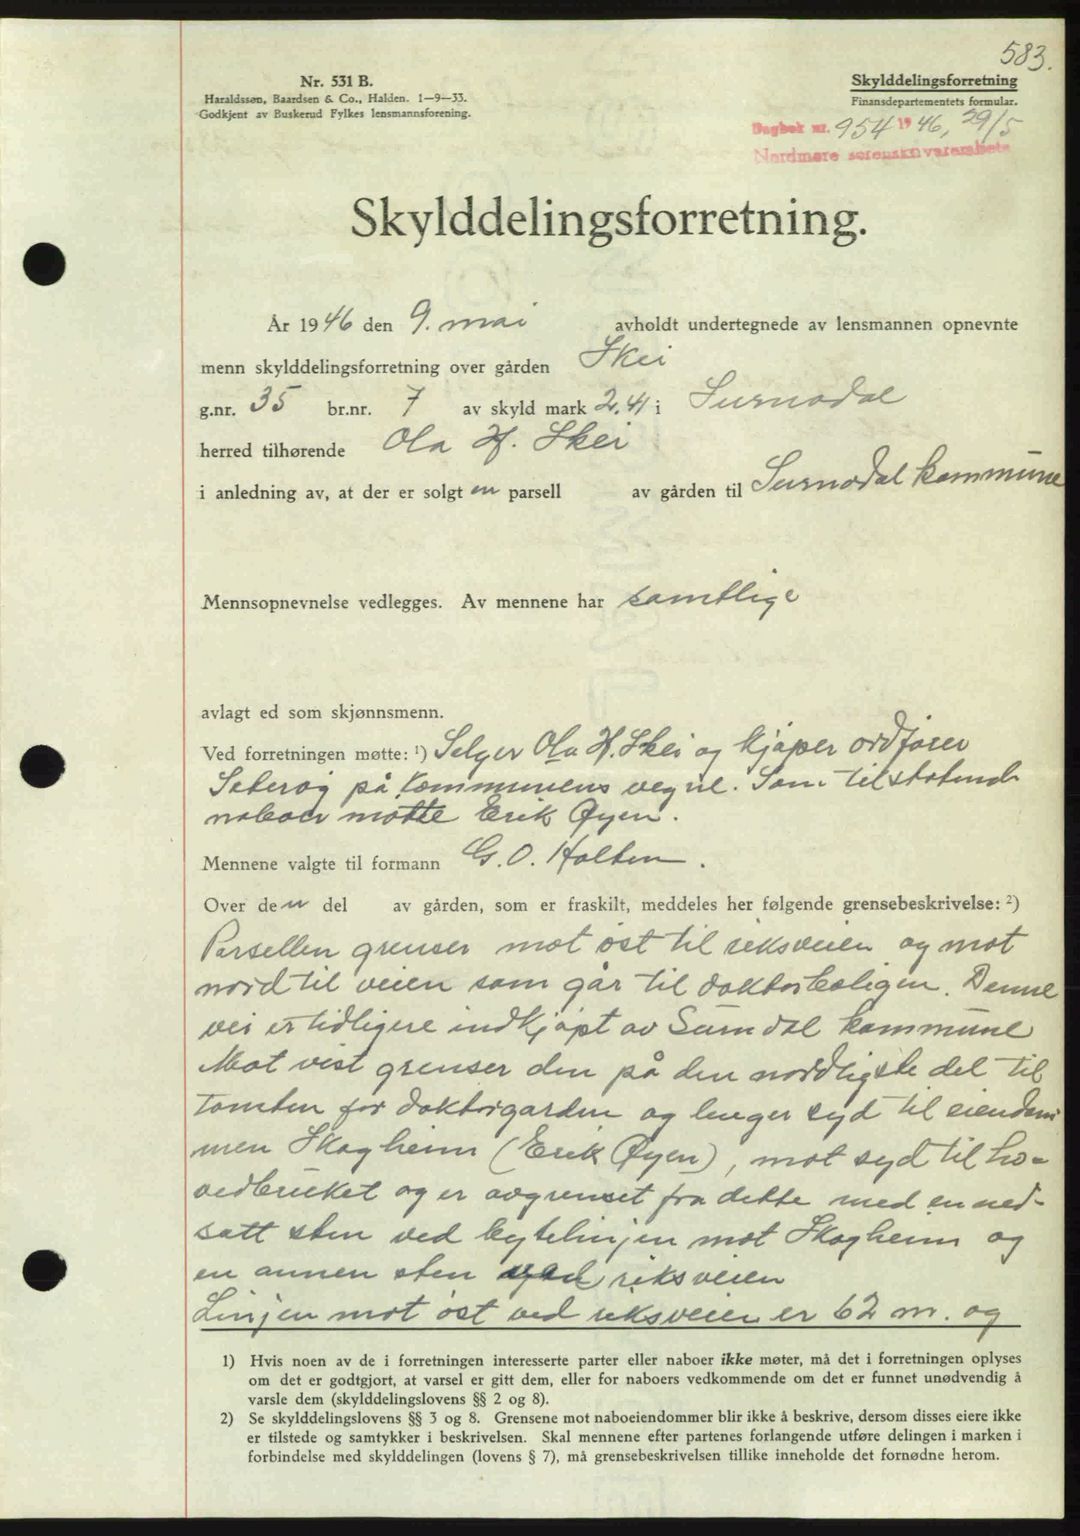 583.
Nr. 531 B.
Haraldssøn, Baardsen & Co., Halden. 1—9—33.
Godkjent av Buskerud Fylkes lensmannsforening.
Skylddelingsforretning
Finansdepartementets formular.
Dagbok nr. 954 1946, 29/5
Nordmøre sorenskriverembete
Skylddelingsforretning.
År 1946 den 9. mai avholdt undertegnede av lensmannen opnevnte
menn skylddelingsforretning over gården Skei
g.nr. 35 br.nr. 7 av skyld mark 2.41 i Surnadal
herred tilhørende Ola H. Skei
i anledning av, at der er solgt en parsell av gården til Surnadal kommune
Mennsopnevnelse vedlegges. Av mennene har samtlige
avlagt ed som skjønnsmenn.
Ved forretningen møtte: ¹) Selger Ola H. Skei og kjøper ordfører
Sæterøy på kommunens vegne. Som tilstøtende
naboer møtte Erik Øyen.
Mennene valgte til formann G. O. Holten.
Over den del av gården, som er fraskilt, meddeles her følgende grensebeskrivelse: ²)
Parsellen grenser mot øst til riksveien og mot
nord til veien som går til doktorboligen. Denne
vei er tidligere indkjøpt av Surndal kommune
Mot vest grenser den på den nordligste del til
tomten for doktorgarden og lenger syd til eiendom
men Skogheim (Erik Øyen), mot syd til ho-
vedbruket og er avgrenset fra dette med en ned-
satt sten ved bytelinjen mot Skogheim og
en annen sten ved riksveien
Linjen mot øst ved riksveien er 62 m. og
1) Hvis noen av de i forretningen interesserte parter eller naboer ikke møter, må det i forretningen oplyses
om det er godtgjort, at varsel er gitt dem, eller for naboers vedkommende om det er funnet unødvendig å
varsle dem (skylddelingslovens §§ 2 og 8).
2) Se skylddelingslovens §§ 3 og 8. Grensene mot naboeiendommer blir ikke å beskrive, dersom disses eiere ikke
er tilstede og samtykker i beskrivelsen. Skal mennene efter partenes forlangende utføre delingen i marken i
forbindelse med skylddelingen (lovens § 7), må grensebeskrivelsen tillike inneholde det fornødne herom.